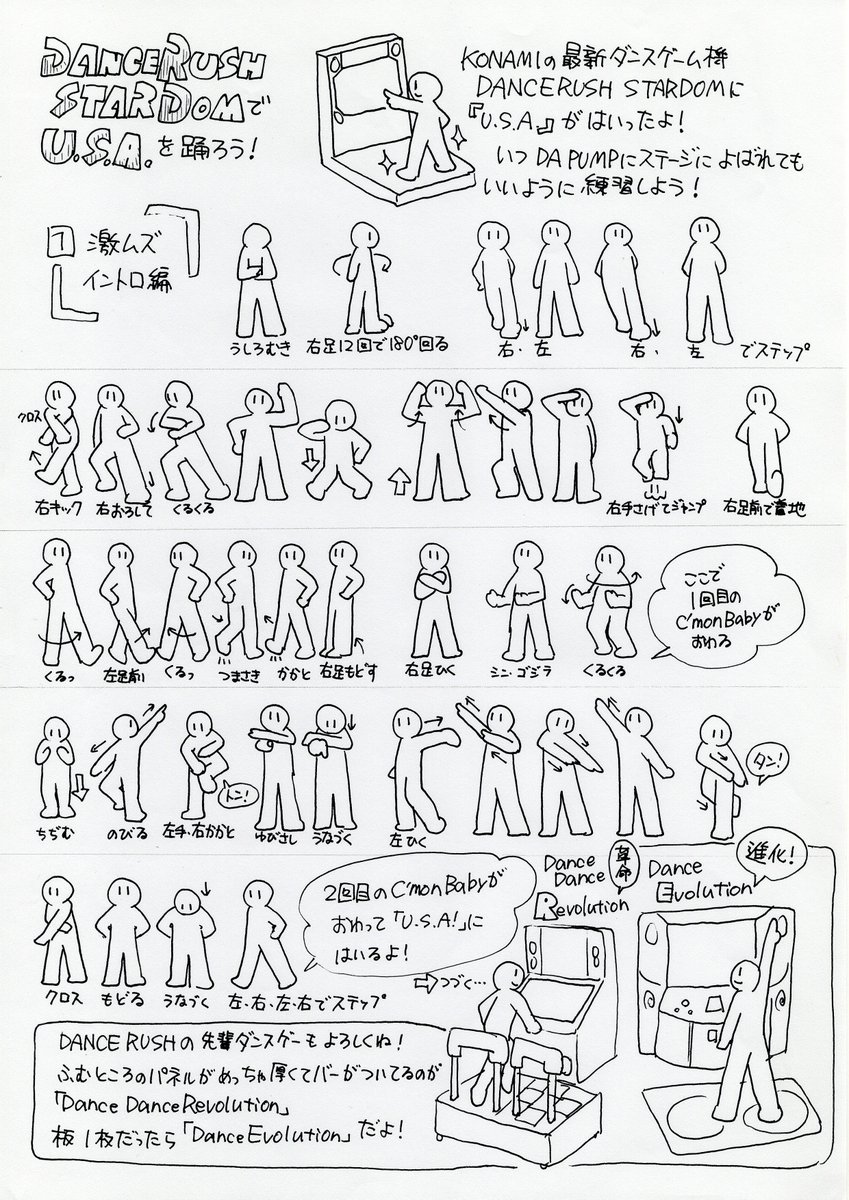 DANCERUSH
STARDOMで
U.S.A.を踊ろう!
KONAMIの最新ダンスゲーム機
DANCERUSH STARDOMに
『U.S.A.』がはいったよ!
いつDA PUMPにステージによばれても
いいように練習しよう!
1 激ムズ
イントロ編
うしろむき
右足12回で180°回る
右、左
右、左 でステップ
クロス
右キック
右おろして
くるくる
右手さげてジャンプ
右足前で着地
くるっ
左足前
くるっ
つまさき
かかと
右足もどす
右足ひく
シン・ゴジラ
くるくる
ここで
1回目の
C'mon Babyが
おわる
ちぢむ
のびる
左手、右かかと
トン!
ゆびさし
うなづく
左ひく
タン!
クロス
もどる
うなづく
左、右、左、右でステップ
2回目のC'mon Babyが
おわって「U.S.A!」に
はいるよ!
⇨つづく…
Dance
Dance
Revolution
革命
Dance
Evolution
進化!
DANCE RUSHの先輩ダンスゲーもよろしくね!
ふむところのパネルがめっちゃ厚くてバーがついてるのが
「Dance Dance Revolution」
板1枚だったら「Dance Evolution」だよ!